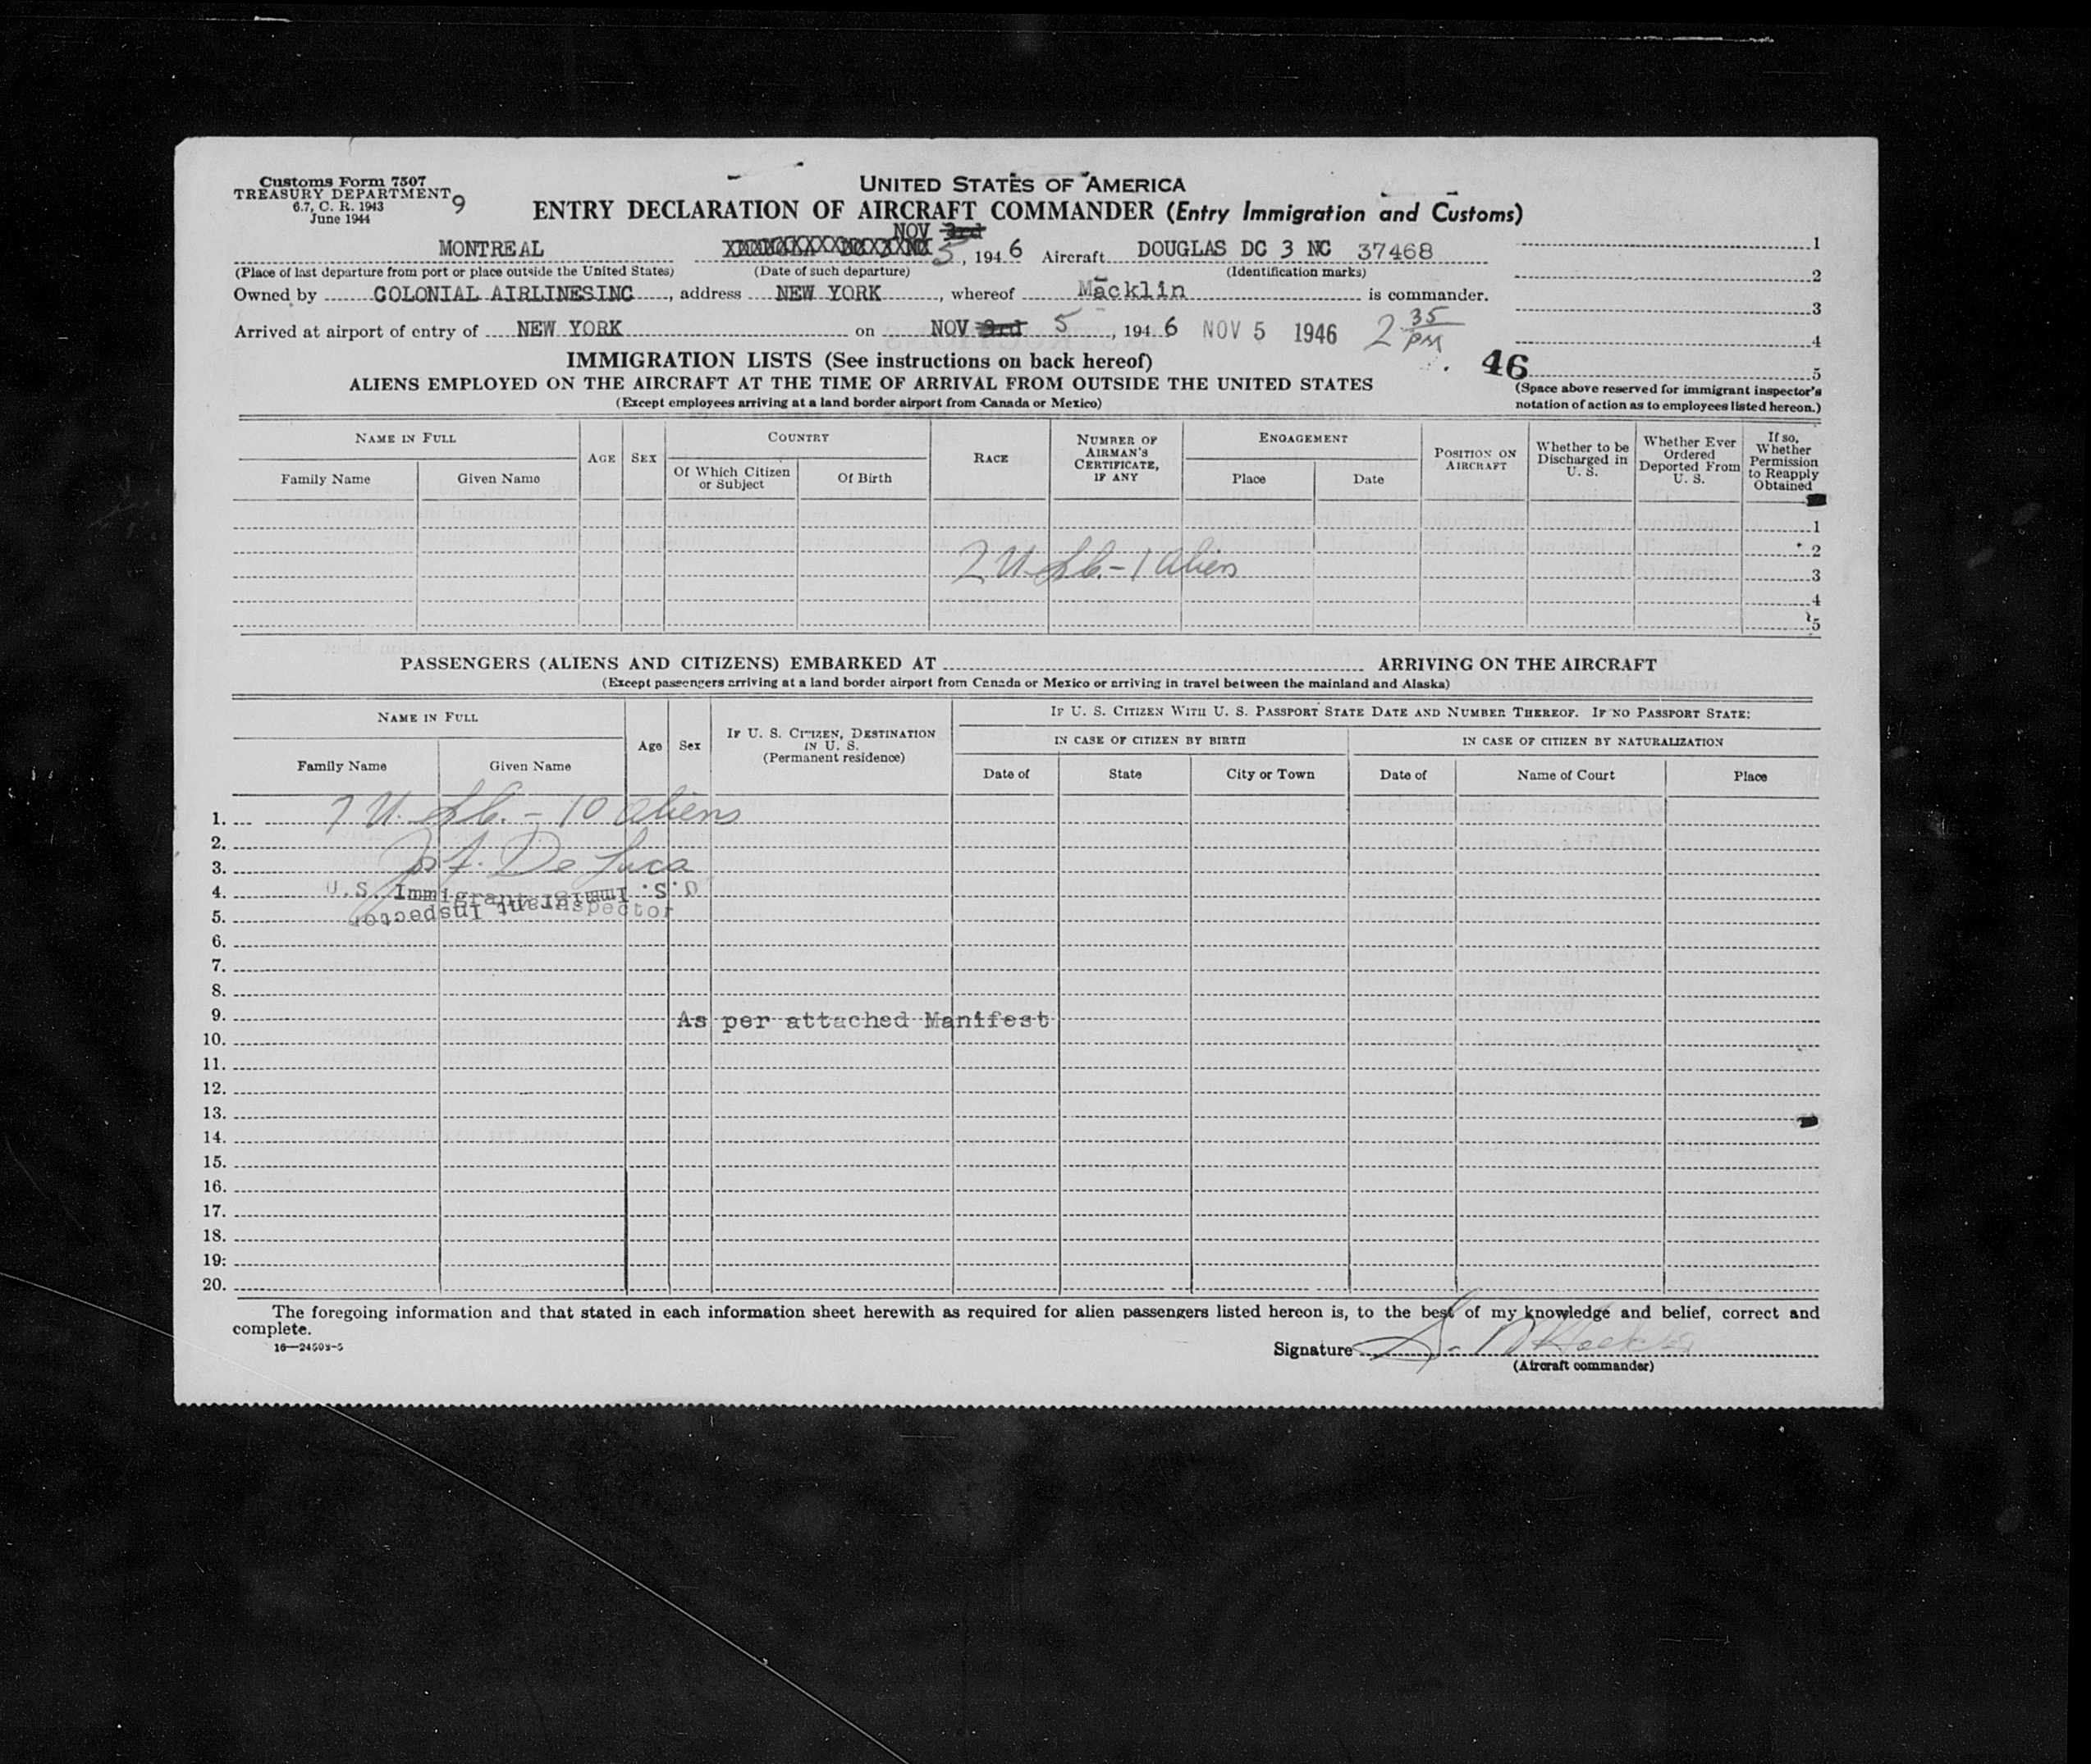 Customs Form 7507
TREASURY DEPARTMENT
6.7, C. R. 1943
June 1944
9
UNITED STATES OF AMERICA
ENTRY DECLARATION OF AIRCRAFT COMMANDER (Entry Immigration and Customs)
NOV 3rd
MONTREAL 5, 1946 Aircraft DOUGLAS DC 3 NC 37468 1
(Place of last departure from port or place outside the United States) (Date of such departure) (Identification marks) 2
Owned by COLONIAL AIRLINESINC, address NEW YORK, whereof Macklin is commander.
3
Arrived at airport of entry of NEW YORK on NOV 3rd 5, 1946 NOV 5 1946 2 35 PM
4
IMMIGRATION LISTS (See instructions on back hereof) 46 5
ALIENS EMPLOYED ON THE AIRCRAFT AT THE TIME OF ARRIVAL FROM OUTSIDE THE UNITED STATES
(Except employees arriving at a land border airport from Canada or Mexico)
(Space above reserved for immigrant inspector's
notation of action as to employees listed hereon.)
NAME IN FULL
Family Name Given Name
AGE SEX
COUNTRY
Of Which Citizen or Subject
Of Birth
RACE
NUMBER OF AIRMAN'S CERTIFICATE, IF ANY
ENGAGEMENT
Place Date
POSITION ON AIRCRAFT
Whether to be Discharged in U. S.
Whether Ever Ordered Deported From U. S.
If so, Whether Permission to Reapply Obtained
1
2
2 U. - 1 Alien
3
4
5
PASSENGERS (ALIENS AND CITIZENS) EMBARKED AT ARRIVING ON THE AIRCRAFT
(Except passengers arriving at a land border airport from Canada or Mexico or arriving in travel between the mainland and Alaska)
NAME IN FULL
Family Name Given Name
Age Sex
IF U. S. CITIZEN, DESTINATION IN U. S.
(Permanent residence)
IF U. S. CITIZEN WITH U. S. PASSPORT STATE DATE AND NUMBER THEREOF. IF NO PASSPORT STATE:
IN CASE OF CITIZEN BY BIRTH IN CASE OF CITIZEN BY NATURALIZATION
Date of State City or Town Date of Name of Court Place
1. 7 U. - 10 aliens
2.
3. De Luca
4. U.S. Immigrant
5. Inspector
6.
7.
8.
9. As per attached Manifest
10.
11.
12.
13.
14.
15.
16.
17.
18.
19:
20.
The foregoing information and that stated in each information sheet herewith as required for alien passengers listed hereon is, to the best of my knowledge and belief, correct and
complete.
16—24503-5
Signature
(Aircraft commander)